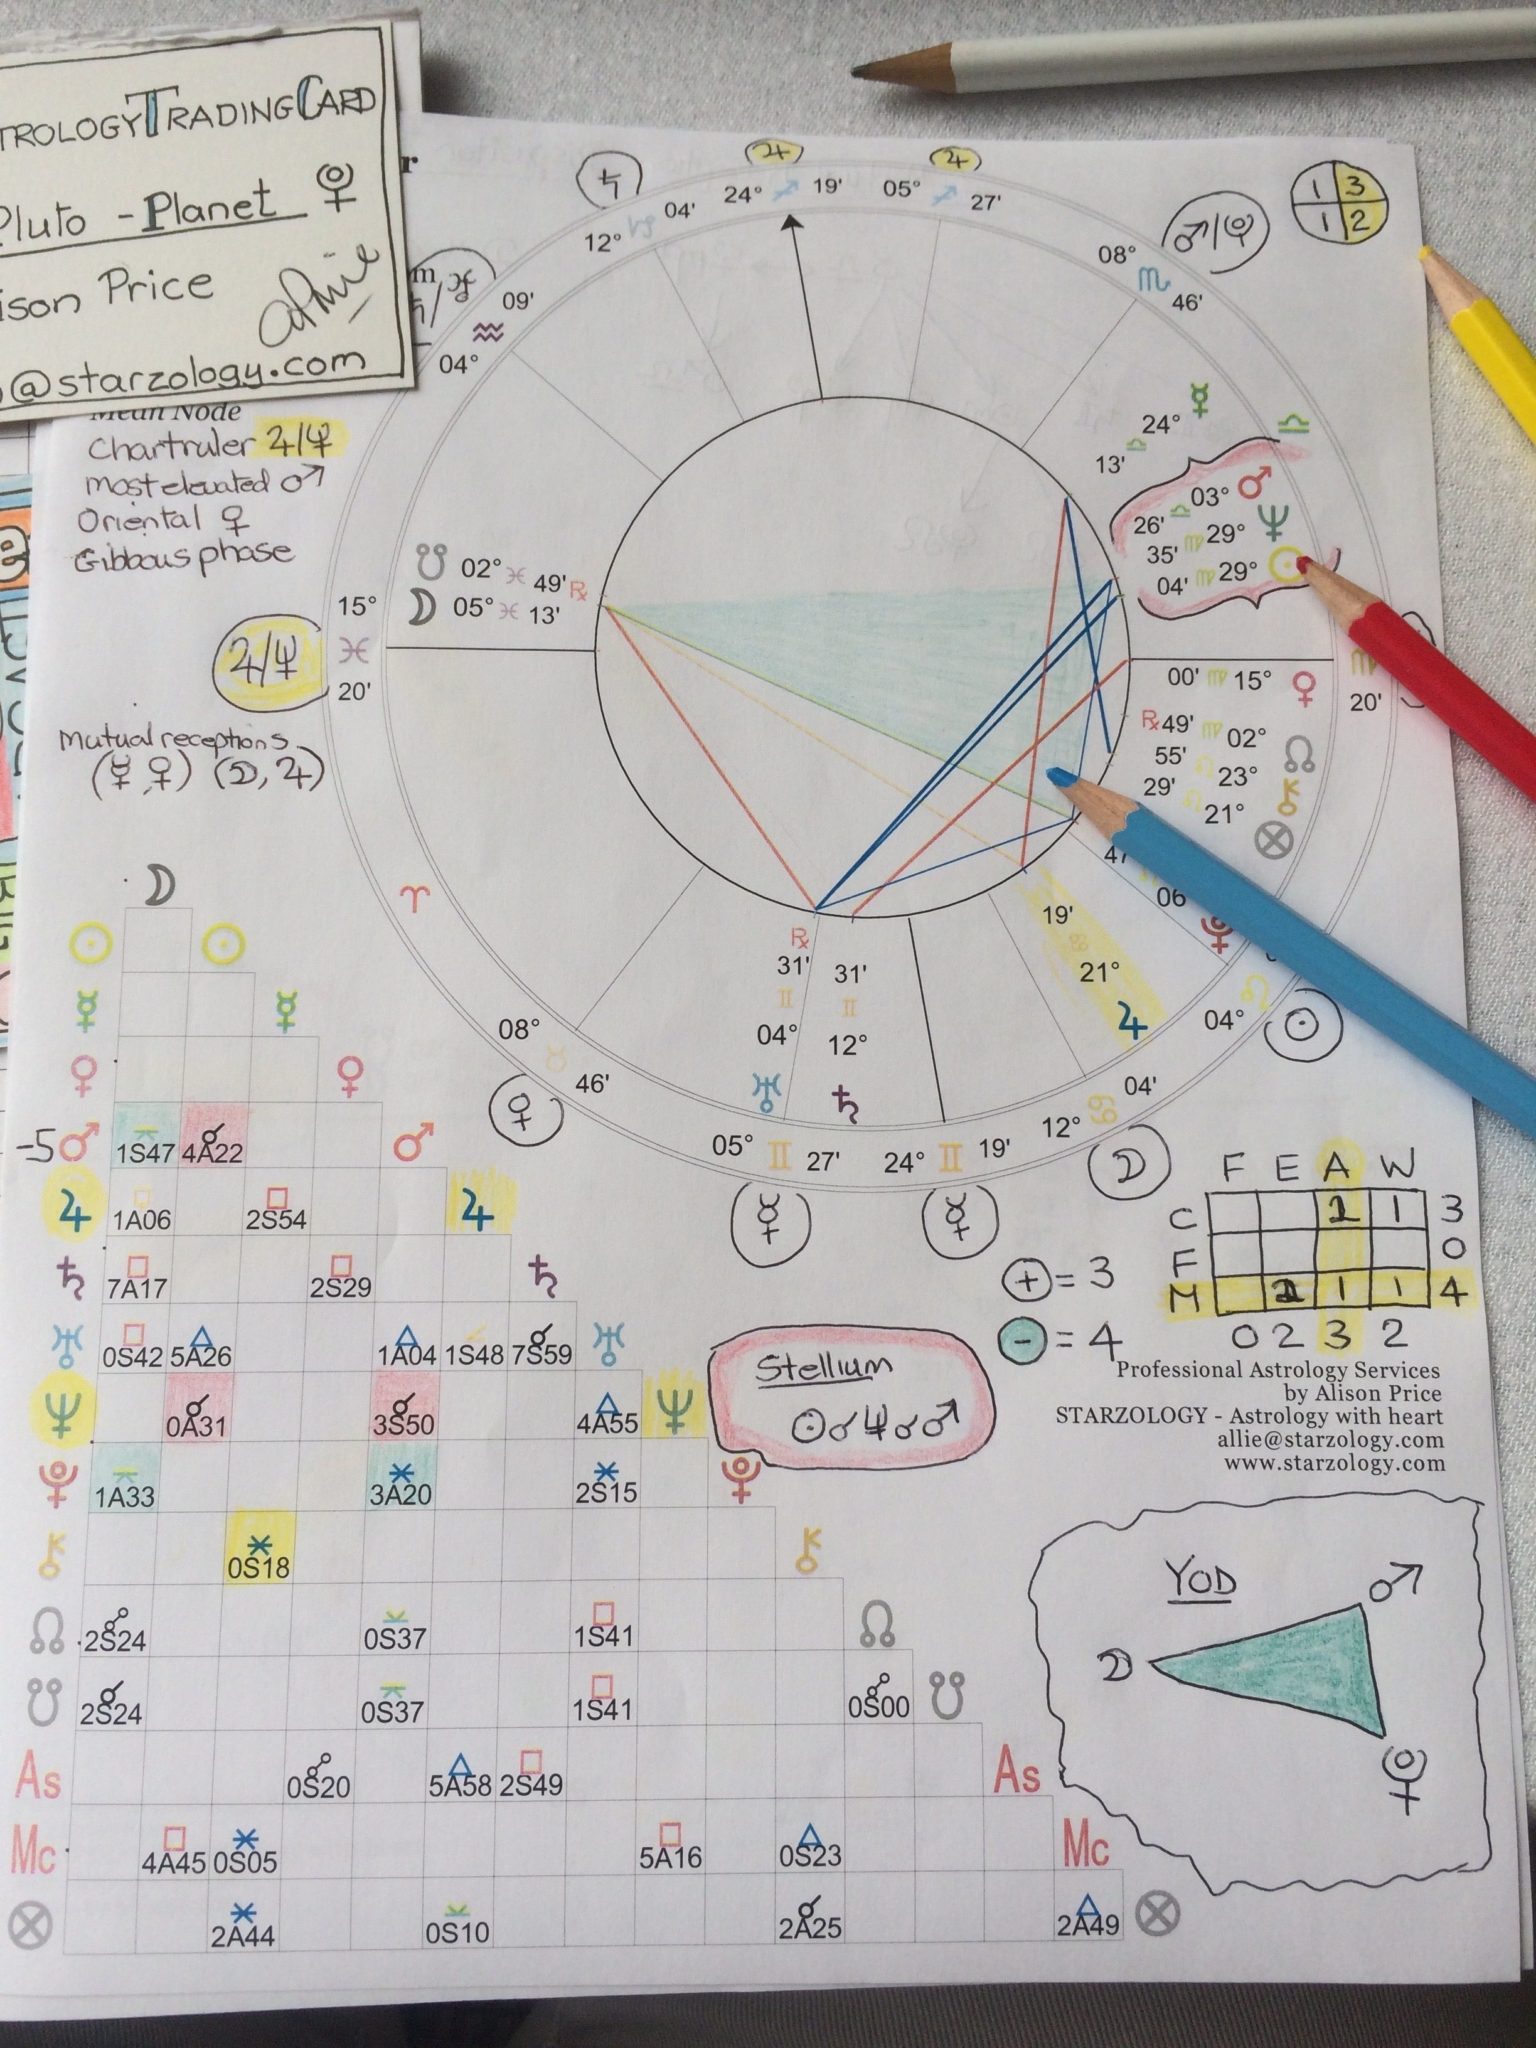 TROLOGY TRADING CARD
Pluto - Planet ♇
ison Price
@starzology.com
r
♄
♃
♃
♂/♇
1 3
1 2
24° ♐ 19'
05° ♐ 27'
12° ♑ 04'
08° ♏ 46'
m
♄/♅
04° ♒ 09'
Mean Node
Chartruler ♃/♆
most elevated ♂
Oriental ♀
Gibbous phase
☿ 24° ♎ 13'
♎
♂ 03° ♎ 26'
♆ 29° ♍ 35'
☉ 29° ♍ 04'
☋ 02° ♓ 49' ℞
☽ 05° ♓ 13'
15° ♓ 20'
♃/♆
♍ 20'
00' ♍ 15° ♀
℞ 49' ♍ 02° ☊
55' ♌ 23° ⚷
29' ♌ 21° ⊗
Mutual receptions
(☿, ♀) (☽, ♃)
47
06
♇
19' ♋ 21° ♃
♈
℞ 31' ♊ 04° ♅
31' ♊ 12° ♄
04° ♌
☉
08° ♉ 46'
♀
05° ♊ 27'
24° ♊ 19'
12° ♋ 04'
☿
☿
☽
☽
☉ ☉
☿ ☿
♀ ♀
-5 ♂ ⚻ 1S47 ☌ 4A22 ♂
♃ 1A06 □ 2S54 ♃
♄ □ 7A17 □ 2S29 ♄
♅ □ 0S42 △ 5A26 △ 1A04 1S48 ☌ 7S59 ♅
♆ ☌ 0A31 ☌ 3S50 △ 4A55 ♆
♇ ⚻ 1A33 ⚹ 3A20 ⚹ 2S15 ♇
⚷ ⚹ 0S18 ⚷
☊ ☍ 2S24 ⚺ 0S37 □ 1S41 ☊
☋ ☌ 2S24 ⚻ 0S37 □ 1S41 ☍ 0S00 ☋
As ☍ 0S20 △ 5A58 □ 2S49 As
Mc □ 4A45 ⚹ 0S05 □ 5A16 △ 0S23 Mc
⊗ ⚹ 2A44 ⚺ 0S10 ☌ 2A25 △ 2A49 ⊗
F E A W
C 2 1 3
F 0
M 2 1 1 4
0 2 3 2
+ = 3
- = 4
Stellium
☉☌♆☌♂
Professional Astrology Services
by Alison Price
STARZOLOGY - Astrology with heart
allie@starzology.com
www.starzology.com
YOD
♂
☽
♇